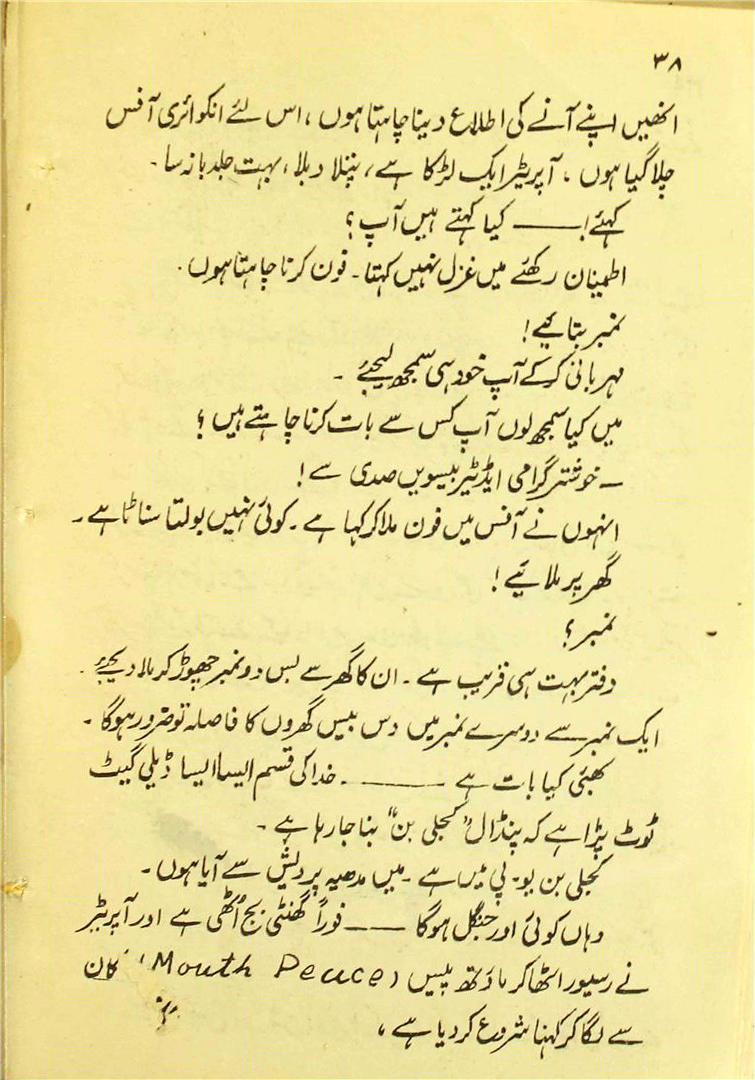 ۳۸
انھیں اپنے آنے کی اطلاع دینا چاہتا ہوں، اس لئے انکوائری آفس
چلا گیا ہوں ۔ آپریٹر ایک لڑکا ہے، پتلا دبلا، بہت جلد بانہ سا۔
کہئے! ــــــ کیا کہتے ہیں آپ؟
اطمینان رکھئے میں غزل نہیں کہتا۔ فون کرنا چاہتا ہوں۔
نمبر بتایئے!
مہربانی کرکے آپ خود ہی سمجھ لیجئے ۔
میں کیا سمجھ لوں آپ کس سے بات کرنا چاہتے ہیں؟
ـ خوشتر گرامی ایڈٹیر بیسویں صدی سے!
انہوں نے آفس میں فون ملا کر کہا ہے ۔ کوئی نہیں بولتا سناٹا ہے ۔
گھر پر ملائیے!
نمبر؟
دفتر بہت ہی قریب ہے ۔ ان کا گھر سے بس دو نمبر چھوڑ کر ملا دیجئے ۔
ایک نمبر سے دوسرے نمبر میں دس بیس گھروں کا فاصلہ تو ضرور ہوگا ۔
بھئی کیا بات ہے ــــــــ ۔ خدا کی قسم ایسا ایسا ڈیلی گیٹ
ٹوٹ پڑا ہے کہ پنڈال "کجلی بن" بنا جا رہا ہے ۔
کجلی بن یو۔ پی میں ہے ۔ میں مدھیہ پردیش سے آیا ہوں۔
وہاں کوئی اور جنگل ہوگا ــــــ فوراً گھنٹی بج اُٹھی ہے اور آپریٹر
نے رسیور اٹھا کر ماؤتھ پیس (Mouth Peuce) کان
سے لگا کر کہنا شروع کر دیا ہے ،